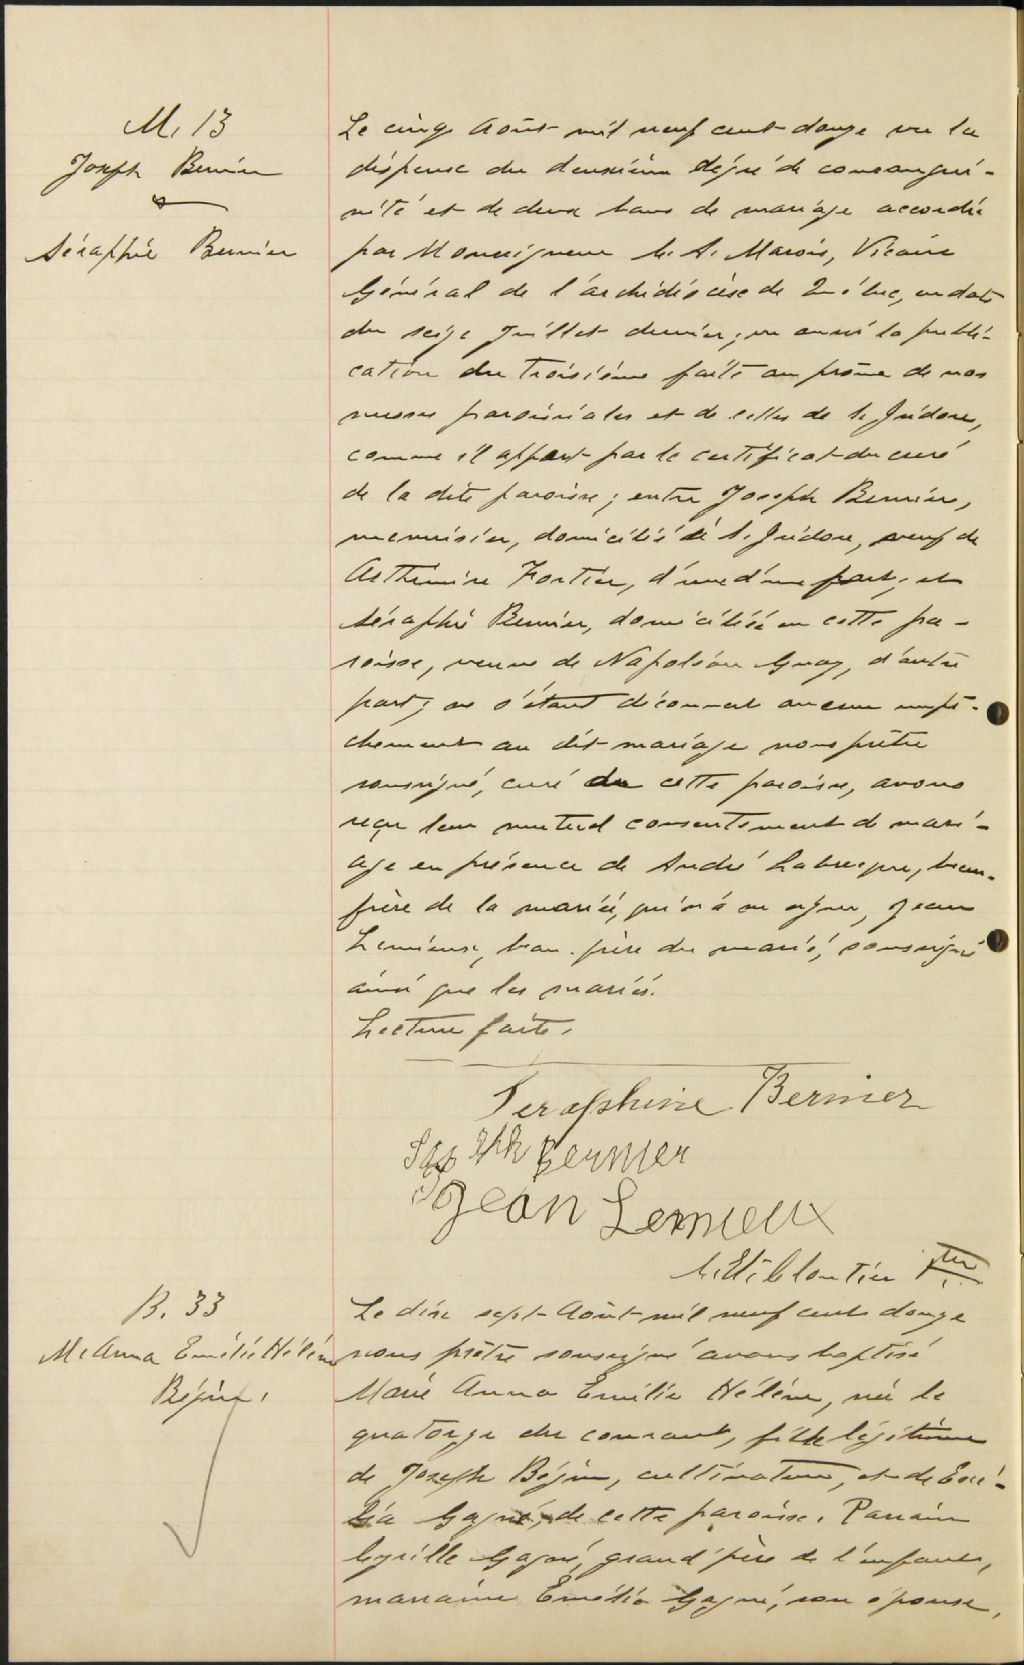 M. 13
Joseph Bernier
&
Séraphie Bernier
Le cinq Août mil neuf cent douze vu la
dispense du deuxième dégré de consangui-
nité et de deux bans de mariage accordée
par Monseigneur C. A. Marois, Vicaire
Général de l'archidiocèse de Québec, en date
du seize Juillet dernier; vu aussi la publi-
cation du troisième faite au prône de nos
messes paroissiales et de celles de St Isidore,
comme il appert par le certificat du curé
de la dite paroisse; entre Joseph Bernier,
menuisier, domicilié à St Isidore, veuf de
Arthémire Fortier, d'une d'une part; et
Séraphie Bernier, domiciliée en cette pa-
roisse, veuve de Napoléon Guay, d'autre
part; ne s'étant découvert aucun empê-
chement au dit mariage nous prêtre
soussigné, curé de cette paroisse, avons
reçu leur mutuel consentement de mari-
age en présence de André Labrecque, beau-
frère de la mariée, qui n'a su signer, Jean
Lemieux, beau-père du marié, soussigné
ainsi que les mariés.
Lecture faite.
Seraphine Bernier
Joseph Bernier
Jean Lemieux
Cloutier Ptre
B. 33
M. Anna Emélie Hélène
Bégin.
Le dix sept Août mil neuf cent douze
nous prêtre soussigné avons baptisé
Marie Anna Emélie Hélène, née le
quatorze du courant, fille légitime
de Joseph Bégin, cultivateur, et de Exé-
lia Gagné, de cette paroisse. Parrain
Cyrille Gagné, grand'père de l'enfant,
marraine Emélie Gagné, son épouse,